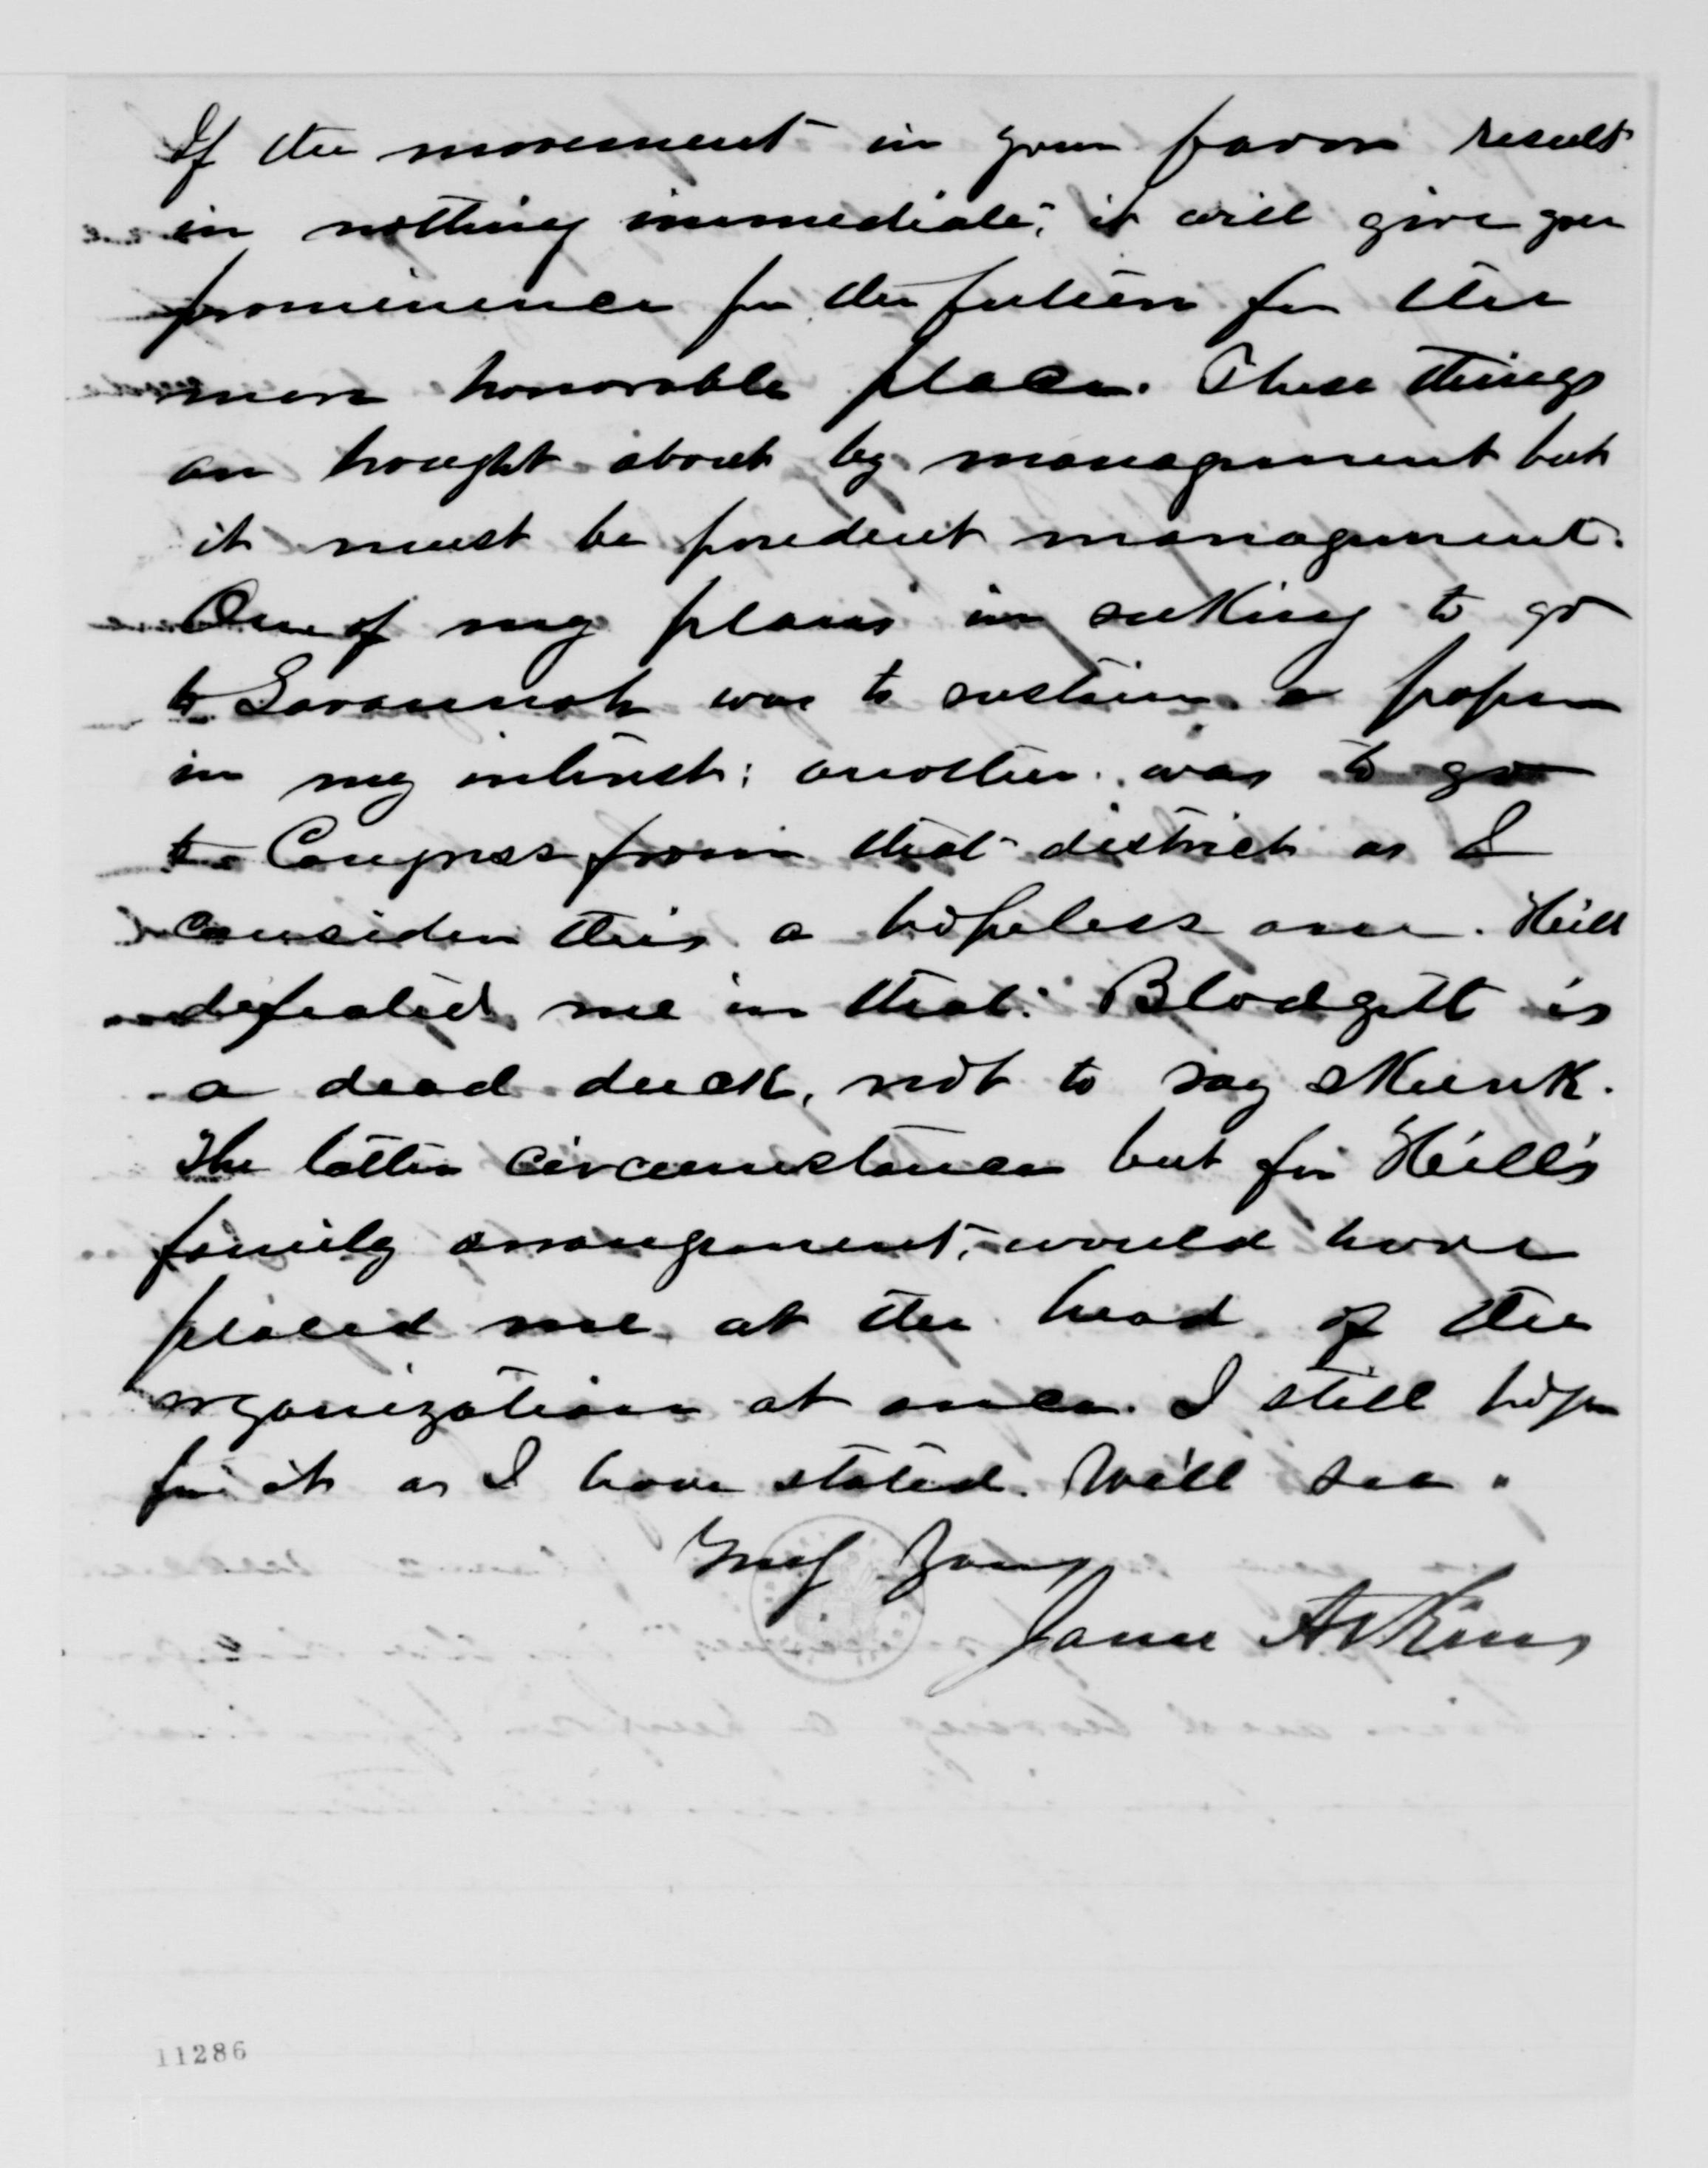 If the movement in your favor result
in nothing immediate, it will give you
prominence for the future for the
more honorable place. These things
are brought about by management but
it must be prudent management.
One of my plans in seeking to go
to Savannah was to sustain a paper
in my interest; another was to go
to Congress from that district as I
consider this a hopeless one. Hill
defeated me in that. Blodgett is
a dead duck, not to say skunk.
The latter circumstance but for Hill's
family arrangement, would have
placed me at the head of the
organization at once. I still hope
for it as I have stated. We'll see.
Truly Yours
James Atkins
11286